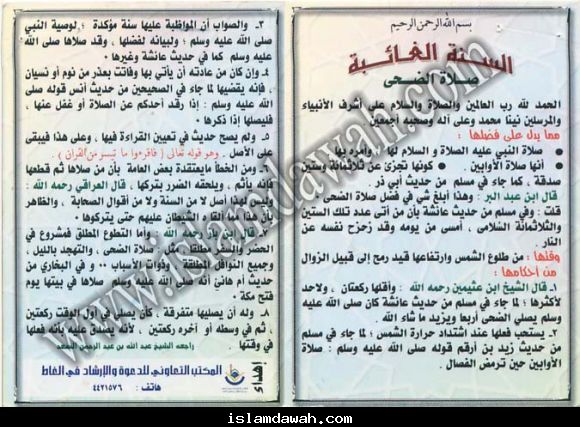 بسم الله الرحمن الرحيم
السنة الغائبة
صلاة الضحى
الحمد لله رب العالمين والصلاة والسلام على أشرف الأنبياء
والمرسلين نبينا محمد وعلى آله وصحبه أجمعين
مما يدل على فضلها :
• صلاة النبي عليه الصلاة و السلام لها ، وأمره بها
• أنها صلاة الأوابين . • كونها تجزئ عن ثلاثمائة وستين
صدقة ، كما جاء في مسلم من حديث أبي ذر .
قال ابن عبد البر : وهذا أبلغ شي في فضل صلاة الضحى
قلت : وفي مسلم من حديث عائشة بأن من أتى عدد تلك الستين
والثلاثمائة السُلامى ، أمسى من يومه وقد زحزح نفسه عن
النار .
وقتها : من طلوع الشمس وارتفاعها قيد رمح إلى قبيل الزوال
من أحكامها :
١. قال الشيخ ابن عثيمين رحمه الله : وأقلها ركعتان ، ولاحد
لأكثرها ؛ لما جاء في مسلم من حديث عائشة كان صلى الله عليه
وسلم يصلي الضحى أربعا ويزيد ما شاء الله .
٢. يستحب فعلها عند اشتداد حرارة الشمس ؛ لما جاء في مسلم
من حديث زيد بن أرقم قوله صلى الله عليه وسلم : صلاة
الأوابين حين ترمض الفصال .
٣. والصواب أن المواظبة عليها سنة مؤكدة ؛ لوصية النبي
صلى الله عليه وسلم ؛ ولبيانه لفضلها ، وقد صلاها صلى الله
عليه وسلم كما في حديث عائشة وغيرها .
٤. وإن كان من عادته أن يأتي بها وفاتت بعذر من نوم أو نسيان
، فإنه يقضيها لما جاء في الصحيحين من حديث أنس قوله صلى
الله عليه وسلم : إذا رقد أحدكم عن الصلاة أو غفل عنها ،
فليصلها إذا ذكرها .
٥. ولم يصح حديث في تعيين القراءة فيها ، وعلى هذا فيبقى
على الأصل . وهو قوله تعالى ( فاقرءوا ما تيسر من القرآن ) .
٦. ومن الخطأ مايعتقده بعض العامة بأن من صلاها ثم قطعها
فإنه يأثم ، ويلحقه الضرر بتركها ، قال العراقي رحمه الله :
وليس لهذا أصل لا من السنة ولا من أقوال الصحابة ، والظاهر
أن هذا مما ألقاه الشيطان عليهم حتى يتركوها .
٧. قال ابن باز رحمه الله : وأما التطوع المطلق فمشروع في
الحضر والسفر مطلقا ، مثل : صلاة الضحى ، والتهجد بالليل ،
وجميع النوافل المطلقة ، وذوات الأسباب .. و في البخاري من
حديث أم هانئ أنه صلى الله عليه وسلم صلاها في بيتها يوم
فتح مكة .
٨. وله أن يصليها متفرقة ، كأن يصلي في أول الوقت ركعتين
، ثم في وسطه أو آخره ركعتين ، لأنه يصدق عليه بأنه فعلها
في وقتها . راجعه الشيخ عبد الله بن عبد الرحمن السعد
إهداء
المكتب التعاوني للدعوة والإرشاد في الغاط
هاتف : ٤٤٢١٥٧٦
www.islamdawah.com
www.islamdawah.com
islamdawah.com